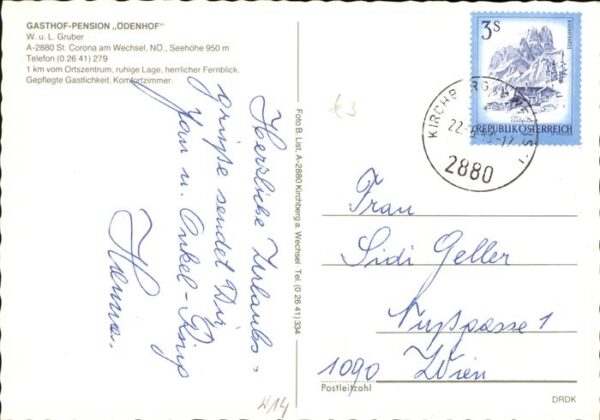 GASTHOF-PENSION „ÖDENHOF“
W. u. L. Gruber
A-2880 St. Corona am Wechsel, NÖ., Seehöhe 950 m
Telefon (0 26 41) 279
1 km vom Ortszentrum, ruhige Lage, herrlicher Fernblick.
Gepflegte Gastlichkeit, Komfortzimmer.
Herzliche Urlaubs=
grüße sendet Dir
u. Onkel-
Foto B. List, A-2880 Kirchberg a. Wechsel Tel. (0 26 41) 334
€3
3S
REPUBLIK ÖSTERREICH
KIRCHBERG
2880
Frau
Sidi Geller
Nußgasse 1
1090 Wien
Postleitzahl
H14
DRDK